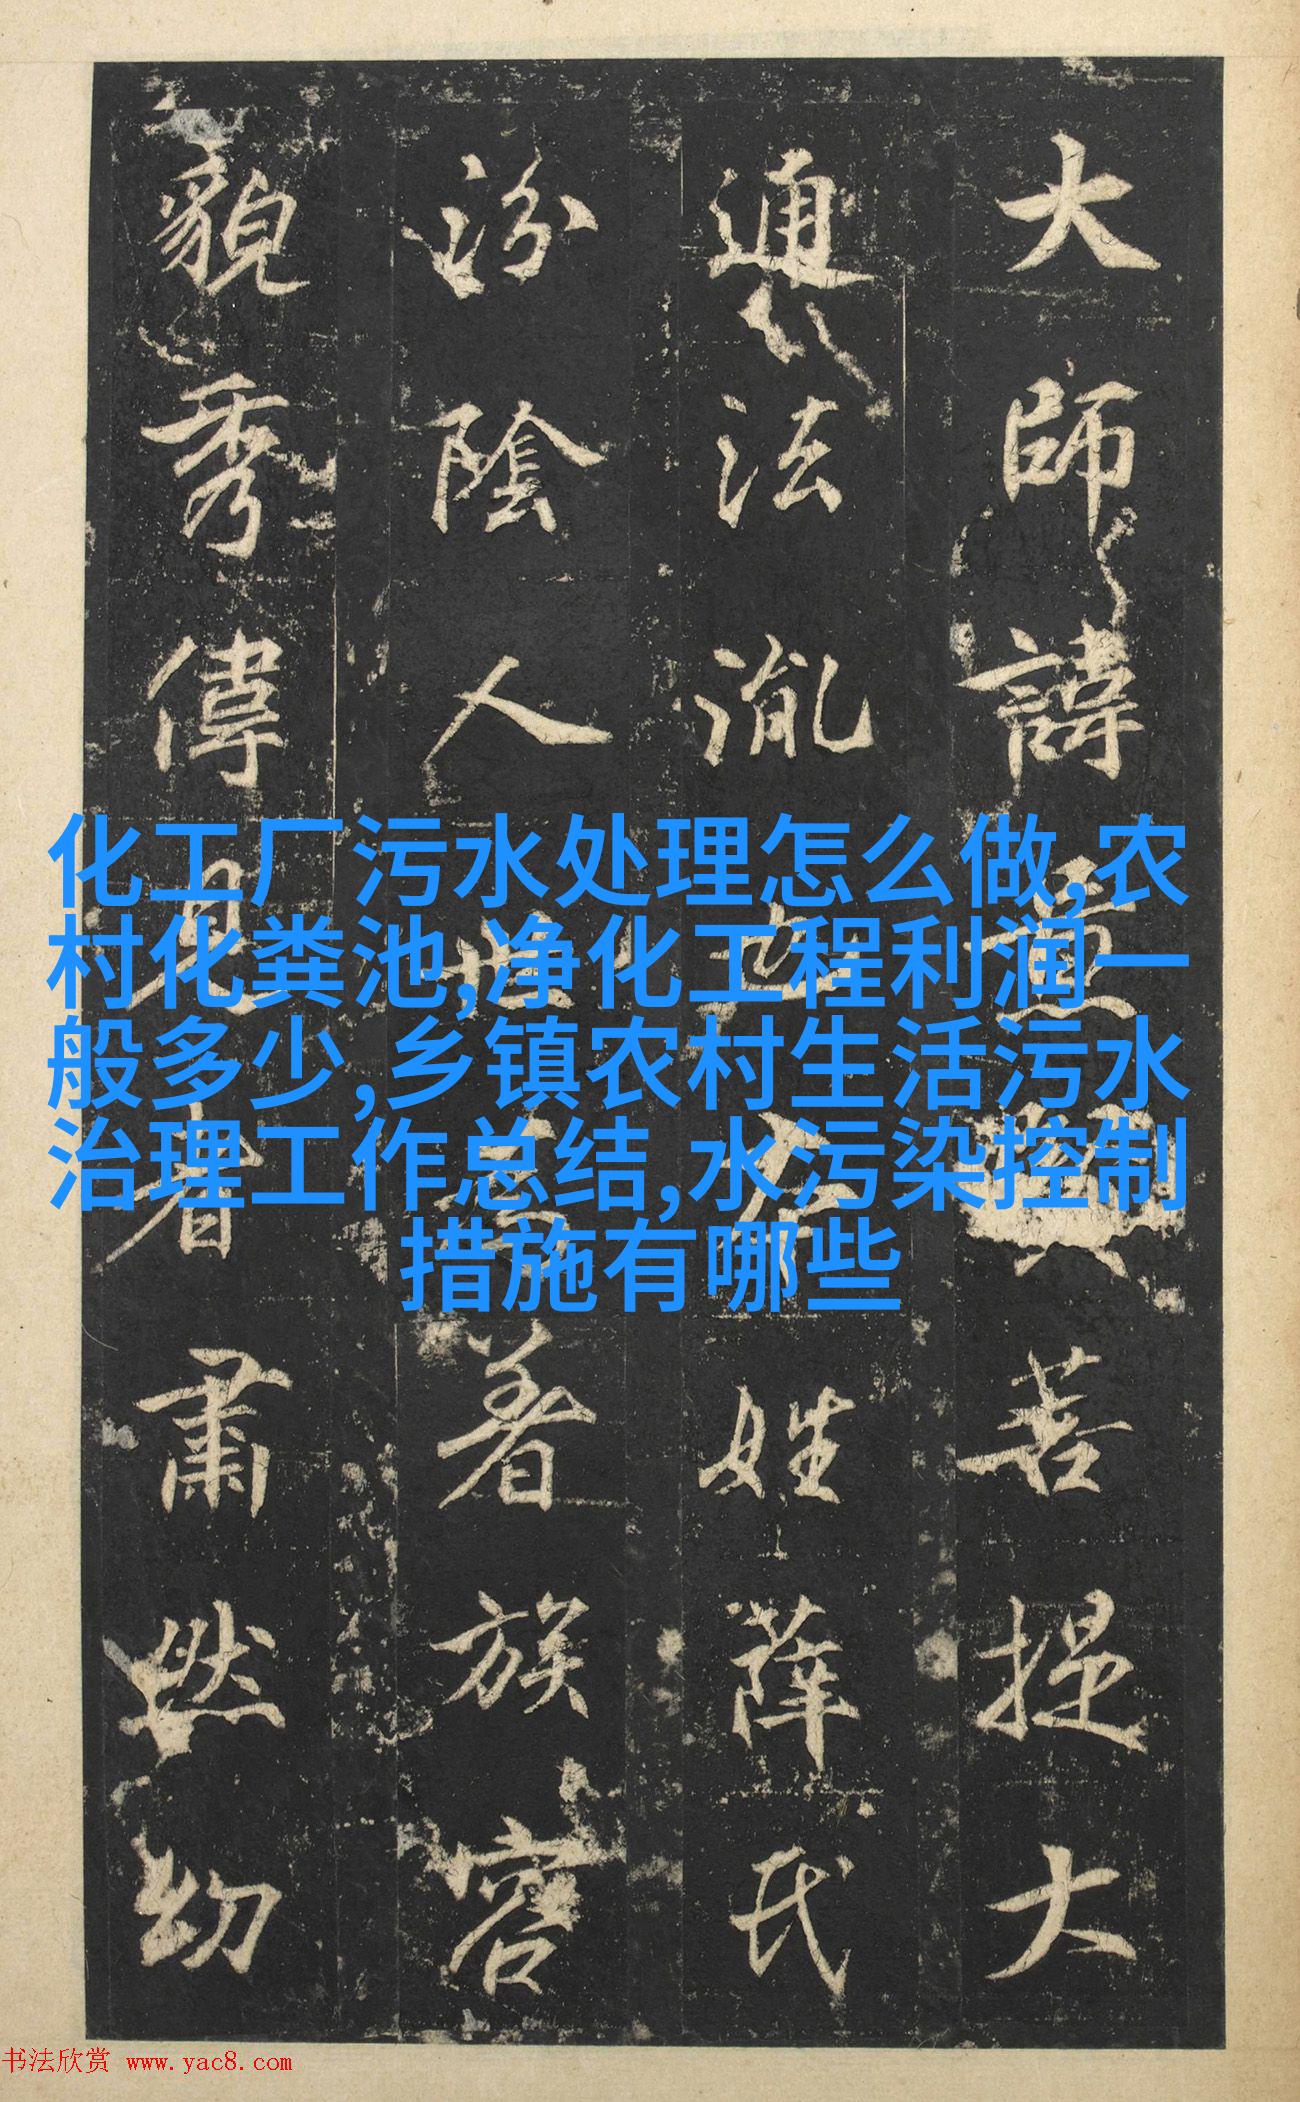 大師諱菩提大
通法胤也姓薛氏
汾陰人世著族容
貌秀偉見者肅然幼
化工厂污水处理怎么做,农
村化粪池,净化工程利润一
般多少,乡镇农村生活污水
治理工作总结,水污染控制
措施有哪些
书法欣赏 www.yac8.com